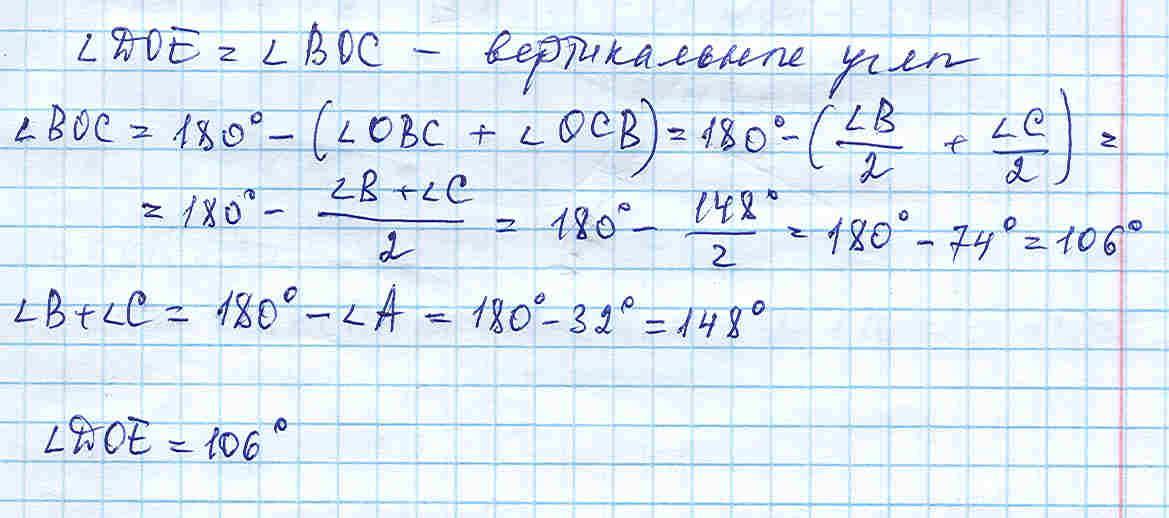 ∠DOE = ∠BOC - вертикальные углы
∠BOC = 180° - (∠OBC + ∠OCB) = 180° - (∠B/2 + ∠C/2) =
= 180° - (∠B + ∠C)/2 = 180° - 148°/2 = 180° - 74° = 106°
∠B + ∠C = 180° - ∠A = 180° - 32° = 148°
∠DOE = 106°